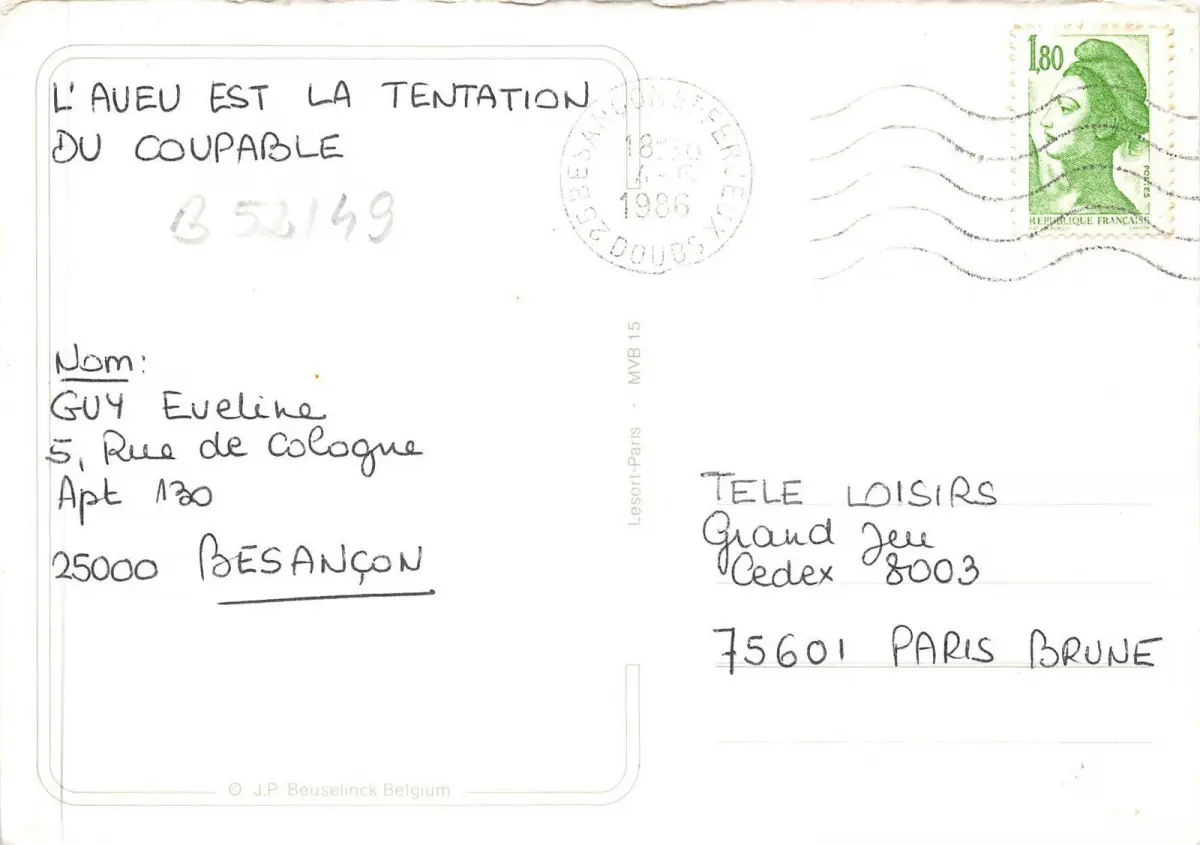 L'AVEU EST LA TENTATION
DU COUPABLE
B 52149
Nom:
GUY Eveline
5, Rue de Cologne
Apt 130
25000 BESANÇON
© J.P. Beuselinck Belgium
Lesort-Paris - MVB 15
25 BESANCON ST FERJEUX DOUBS
18
1986
1,80
POSTES
REPUBLIQUE FRANCAISE
TELE LOISIRS
Grand Jeu
Cedex 8003
75601 PARIS BRUNE